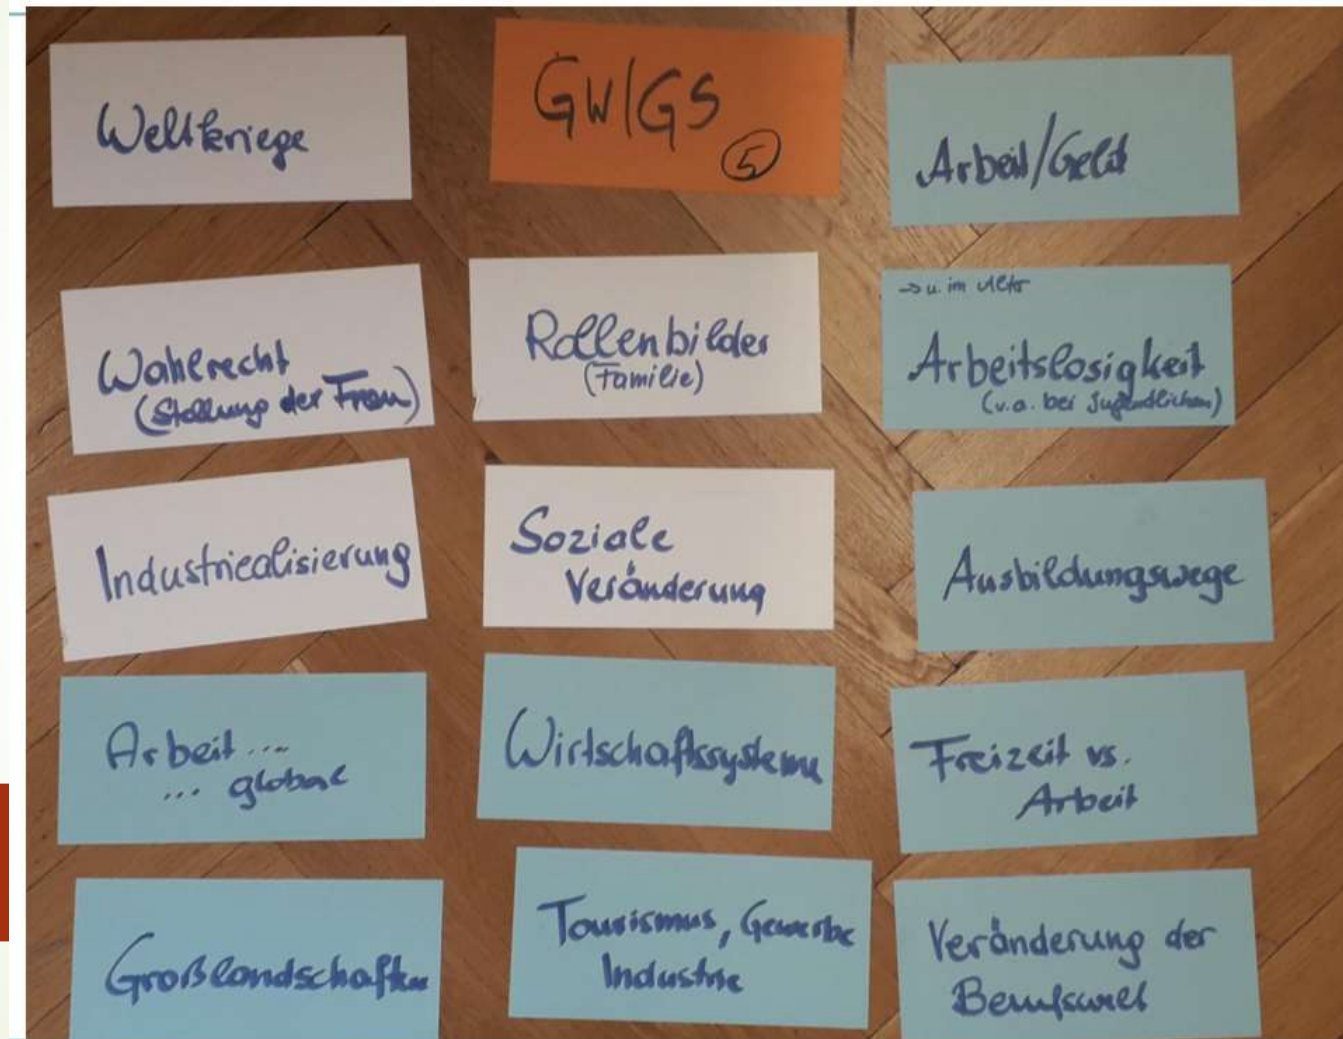 Weltkriege
GW/GS
5
Arbeit/Geld
Wahlrecht
(Stellung der Frau)
Rollenbilder
(Familie)
→ u. im Alter
Arbeitslosigkeit
(v.a. bei Jugendlichen)
Industriealisierung
Soziale
Veränderung
Ausbildungswege
Arbeit ...
... global
Wirtschaftssysteme
Freizeit vs.
Arbeit
Großlandschaften
Tourismus, Gewerbe
Industrie
Veränderung der
Berufswelt